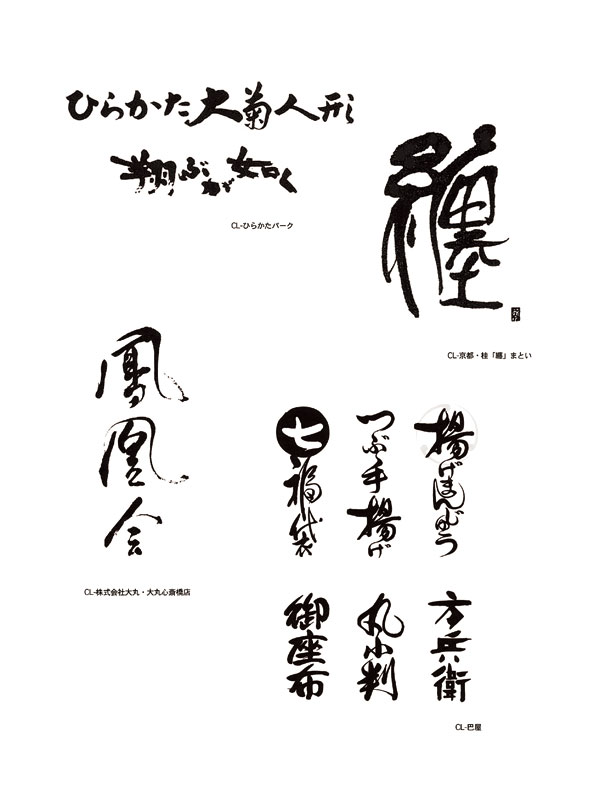 ひらかた大菊人形
翔ぶが如く
CL-ひらかたパーク
纏
CL-京都・桂「纏」まとい
鳳凰会
CL-株式会社大丸・大丸心斎橋店
揚げまんじゅう
つぶ手揚げ
七福袋
方兵衛
丸小判
御座布
CL-巴屋